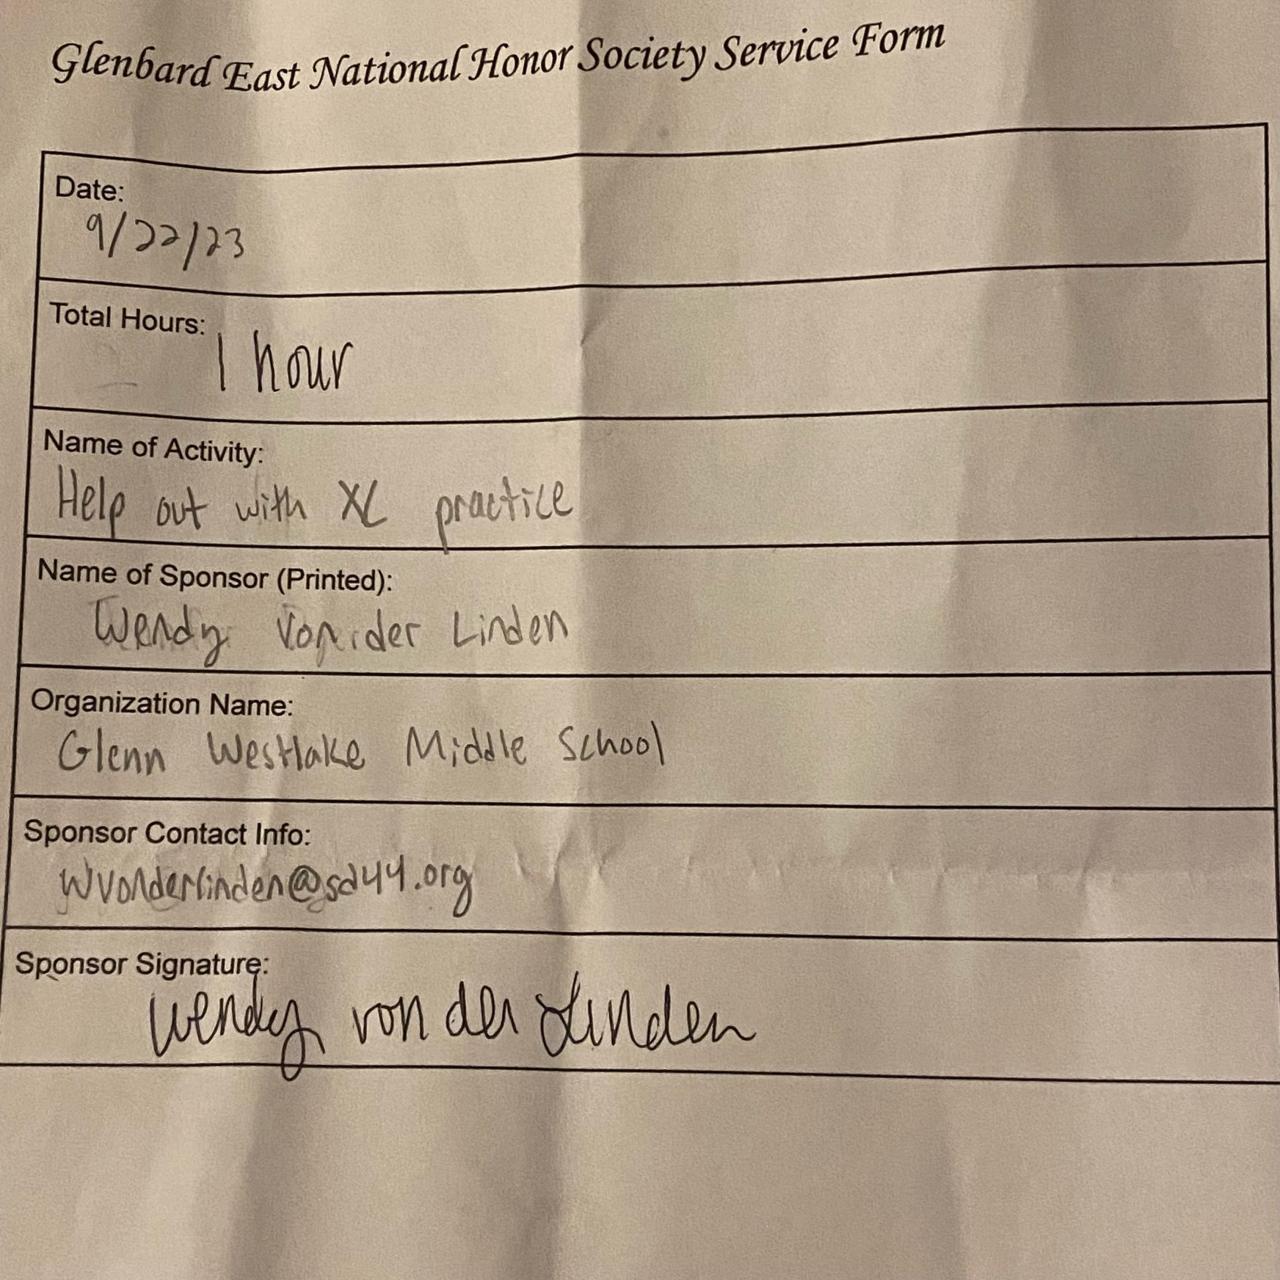 Glenbard East National Honor Society Service Form
Date:
9/22/23
Total Hours:
1 hour
Name of Activity:
Help out with XC practice
Name of Sponsor (Printed):
Wendy Von der Linden
Organization Name:
Glenn Westlake Middle School
Sponsor Contact Info:
Wvonderlinden@sd44.org
Sponsor Signature:
Wendy von der Linden